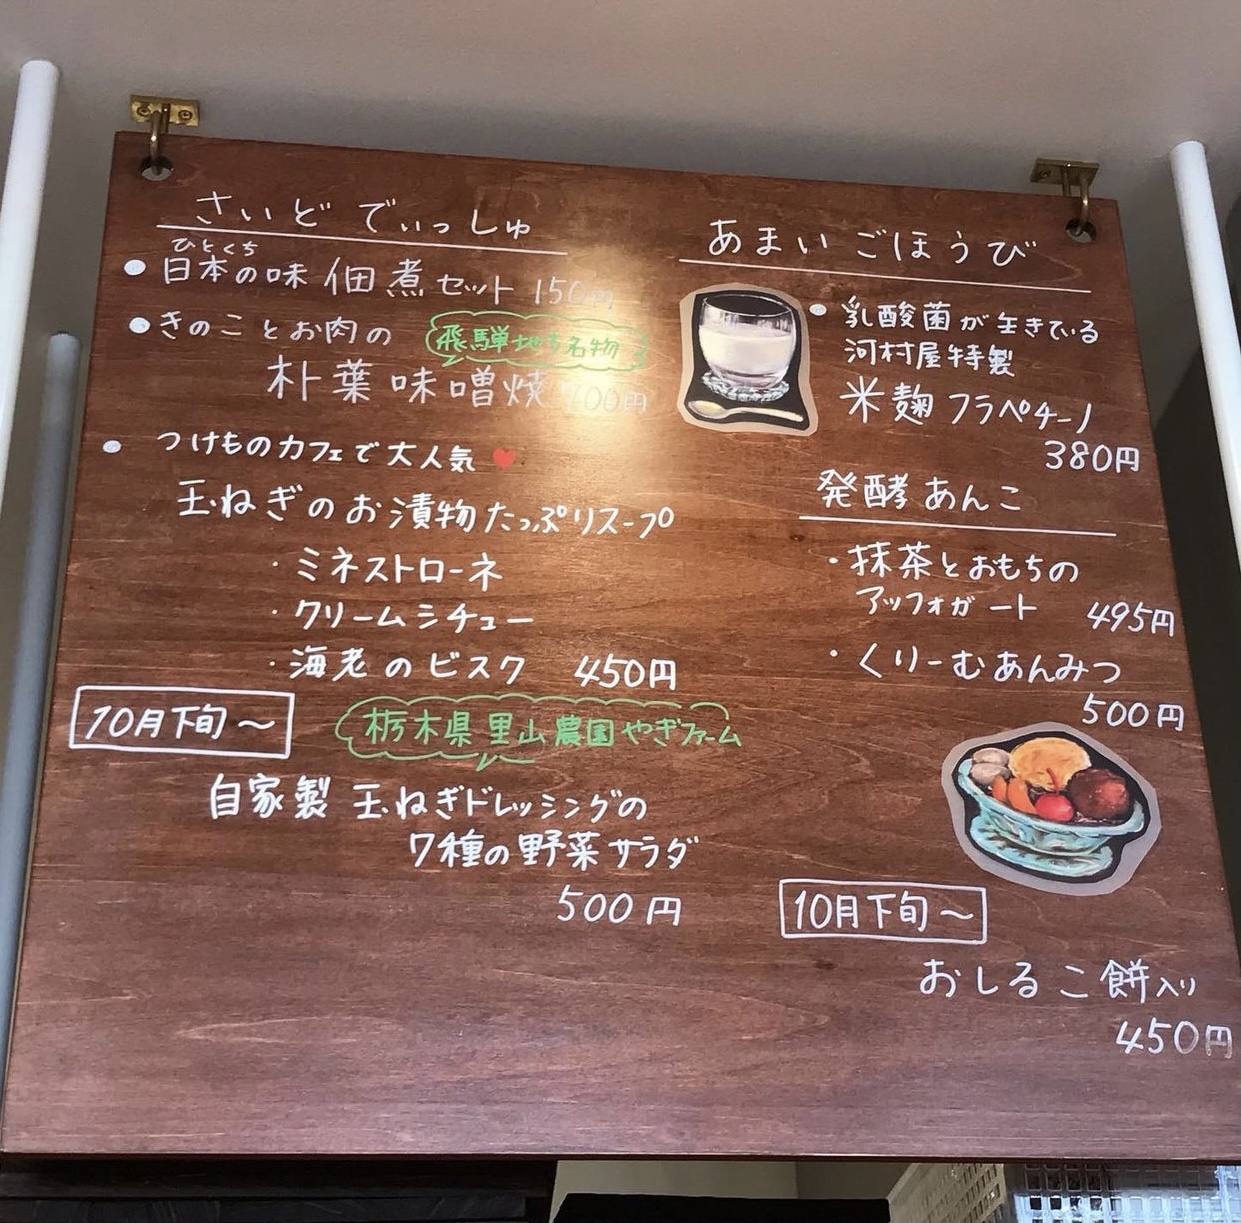 さいど でぃっしゅ
ひとくち
日本の味 佃煮セット 150円
きのことお肉の 飛騨地方名物
朴葉味噌焼 700円
つけものカフェで大人気
玉ねぎのお漬物たっぷりスープ
・ミネストローネ
・クリームシチュー
・海老のビスク 450円
10月下旬～ 栃木県里山農園やぎファーム
自家製 玉ねぎドレッシングの
7種の野菜サラダ
500円
あまい ごほうび
乳酸菌が生きている
河村屋特製
米麹フラペチーノ
380円
発酵あんこ
・抹茶とおもちの
アッフォガート 495円
・くりーむあんみつ
500円
10月下旬～
おしるこ餅入り
450円